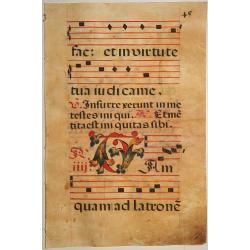 45
fac: et in virtute
tua iudica me.
℣. Insurrexerunt in me
testes iniqui. ℟. Et mē
tita est iniquitas sibi.
℟.
iiij. Tam
quam ad latronē